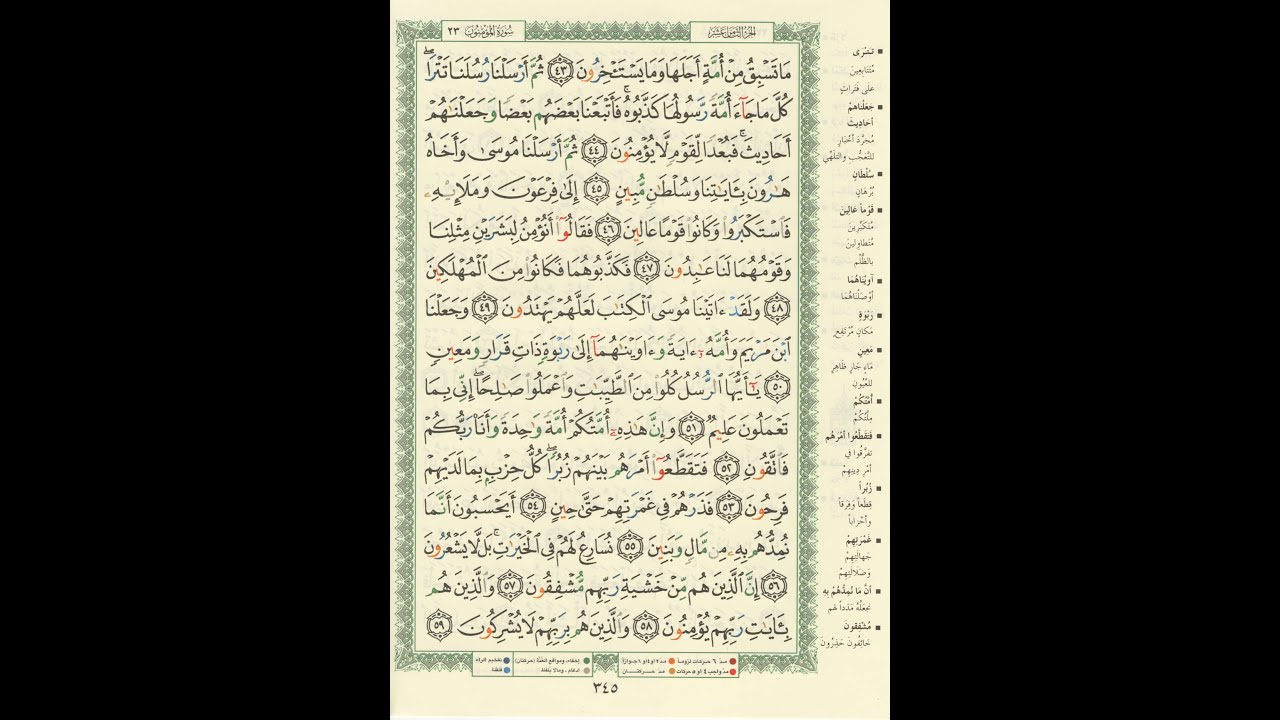 الجزء الثامن عشر
سورة المؤمنون ٢٣
مَا تَسْبِقُ مِنْ أُمَّةٍ أَجَلَهَا وَمَا يَسْتَـْٔخِرُونَ ٤٣ ثُمَّ أَرْسَلْنَا رُسُلَنَا تَتْرَا ۖ
كُلَّ مَا جَآءَ أُمَّةً رَّسُولُهَا كَذَّبُوهُ ۚ فَأَتْبَعْنَا بَعْضَهُم بَعْضًا وَجَعَلْنَـٰهُمْ
أَحَادِيثَ ۚ فَبُعْدًا لِّقَوْمٍ لَّا يُؤْمِنُونَ ٤٤ ثُمَّ أَرْسَلْنَا مُوسَىٰ وَأَخَاهُ
هَـٰرُونَ بِـَٔايَـٰتِنَا وَسُلْطَـٰنٍ مُّبِينٍ ٤٥ إِلَىٰ فِرْعَوْنَ وَمَلَإِي۟هِۦ
فَٱسْتَكْبَرُوا۟ وَكَانُوا۟ قَوْمًا عَالِينَ ٤٦ فَقَالُوٓا۟ أَنُؤْمِنُ لِبَشَرَيْنِ مِثْلِنَا
وَقَوْمُهُمَا لَنَا عَـٰبِدُونَ ٤٧ فَكَذَّبُوهُمَا فَكَانُوا۟ مِنَ ٱلْمُهْلَكِينَ
٤٨ وَلَقَدْ ءَاتَيْنَا مُوسَى ٱلْكِتَـٰبَ لَعَلَّهُمْ يَهْتَدُونَ ٤٩ وَجَعَلْنَا
ٱبْنَ مَرْيَمَ وَأُمَّهُۥٓ ءَايَةً وَءَاوَيْنَـٰهُمَآ إِلَىٰ رَبْوَةٍ ذَاتِ قَرَارٍ وَمَعِينٍ
٥٠ يَـٰٓأَيُّهَا ٱلرُّسُلُ كُلُوا۟ مِنَ ٱلطَّيِّبَـٰتِ وَٱعْمَلُوا۟ صَـٰلِحًا ۖ إِنِّى بِمَا
تَعْمَلُونَ عَلِيمٌ ٥١ وَإِنَّ هَـٰذِهِۦٓ أُمَّتُكُمْ أُمَّةً وَٰحِدَةً وَأَنَا۠ رَبُّكُمْ
فَٱتَّقُونِ ٥٢ فَتَقَطَّعُوٓا۟ أَمْرَهُم بَيْنَهُمْ زُبُرًا ۖ كُلُّ حِزْبٍۭ بِمَا لَدَيْهِمْ
فَرِحُونَ ٥٣ فَذَرْهُمْ فِى غَمْرَتِهِمْ حَتَّىٰ حِينٍ ٥٤ أَيَحْسَبُونَ أَنَّمَا
نُمِدُّهُم بِهِۦ مِن مَّالٍ وَبَنِينَ ٥٥ نُسَارِعُ لَهُمْ فِى ٱلْخَيْرَٰتِ ۚ بَل لَّا يَشْعُرُونَ
٥٦ إِنَّ ٱلَّذِينَ هُم مِّنْ خَشْيَةِ رَبِّهِم مُّشْفِقُونَ ٥٧ وَٱلَّذِينَ هُم
بِـَٔايَـٰتِ رَبِّهِمْ يُؤْمِنُونَ ٥٨ وَٱلَّذِينَ هُم بِرَبِّهِمْ لَا يُشْرِكُونَ ٥٩
تَتْرَى
مُتَتَابِعِينَ
عَلَى فَتَرَاتٍ
جَعَلْنَاهُمْ
أَحَادِيثَ
مُجَرَّدَ أَخْبَارٍ
لِلتَّعَجُّبِ والتَّلَهِّي
سُلْطَانٍ
بُرْهَانٍ
قَوْماً عَالِينَ
مُتَكَبِّرِينَ
مُتَطَاوِلِينَ
بِالظُّلْمِ
آوَيْنَاهُمَا
أَوْصَلْنَاهُمَا
رَبْوَةٍ
مَكَانٍ مُرْتَفِعٍ
مَعِينٍ
مَاءٍ جَارٍ ظَاهِرٍ
لِلْعُيُونِ
أُمَّتُكُمْ
مِلَّتُكُمْ
فَتَقَطَّعُوا أَمْرَهُمْ
تَفَرَّقُوا فِي
أَمْرِ دِينِهِمْ
زُبُراً
قِطَعاً وَفِرَقاً
وَأَحْزَاباً
غَمْرَتِهِمْ
جَهَالَتِهِمْ
وَضَلَالَتِهِمْ
أَنَّ مَا نُمِدُّهُمْ بِهِ
نَجْعَلُهُ مَدَداً لَهُمْ
مُشْفِقُونَ
خَائِفُونَ حَذِرُونَ
مدّ ٦ حركات لزوماً مدّ ٢ أو ٤ أو ٦ جوازاً
مدّ واجب ٤ أو ٥ حركات مدّ حركتان
إخفاء، ومواقع الغُنَّة (حركتان) تفخيم الراء
ادغام، وما لا يُلفَظ قلقلة
٣٤٥